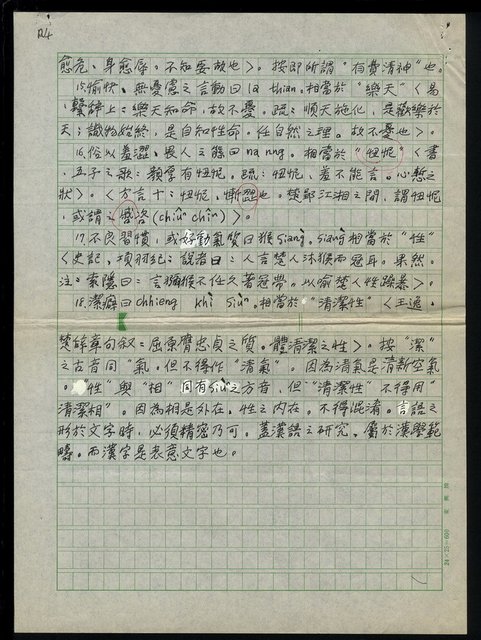 P.4
愈危、身愈辱。不知要故也>。按即所謂"有費清神"也。
15.愉快、無憂慮之言動曰lą thian。相當於"樂天"<易
·繫辭上:樂天知命,故不憂。疏:順天施化,是歡樂於
天;識物始終,是自知性命。任自然之理。故不憂也>。
16.俗以羞澀、畏人之態曰na nng。相當於"忸怩"<書
·五子之歌:顏厚有忸怩。疏:忸怩,羞不能言。心慙之
狀>。<方言十:忸怩,慚澀也。楚郢江湘之間,謂忸怩,
或謂之
咨(chiûⁿ chìn)>。
17.不良習慣,或好動氣質曰猴siàng。siàng相當於"性"
<史記,項羽紀:說者曰:人言楚人沐猴而冠耳。果然。
注:索隱曰:言獼猴不任久著冠帶。以喻楚人性躁暴>。
18.潔癖曰chheng khì siùⁿ。相當於"清潔性"<王逸·
楚辭章句敘:屈原膺忠貞之質。體清潔之性>。按"潔"
之古音同"氣。但不得作"清氣"。因為清氣是清新空氣
。"性"與"相"同有siùⁿ之方音,但"清潔性"不得用"
清潔相"。因為相是外在,性之內在。不得混淆。言語之
形於文字時,必須精密乃可。蓋漢語之研究,屬於漢學範
疇。而漢字是表意文字也。
24×25=600